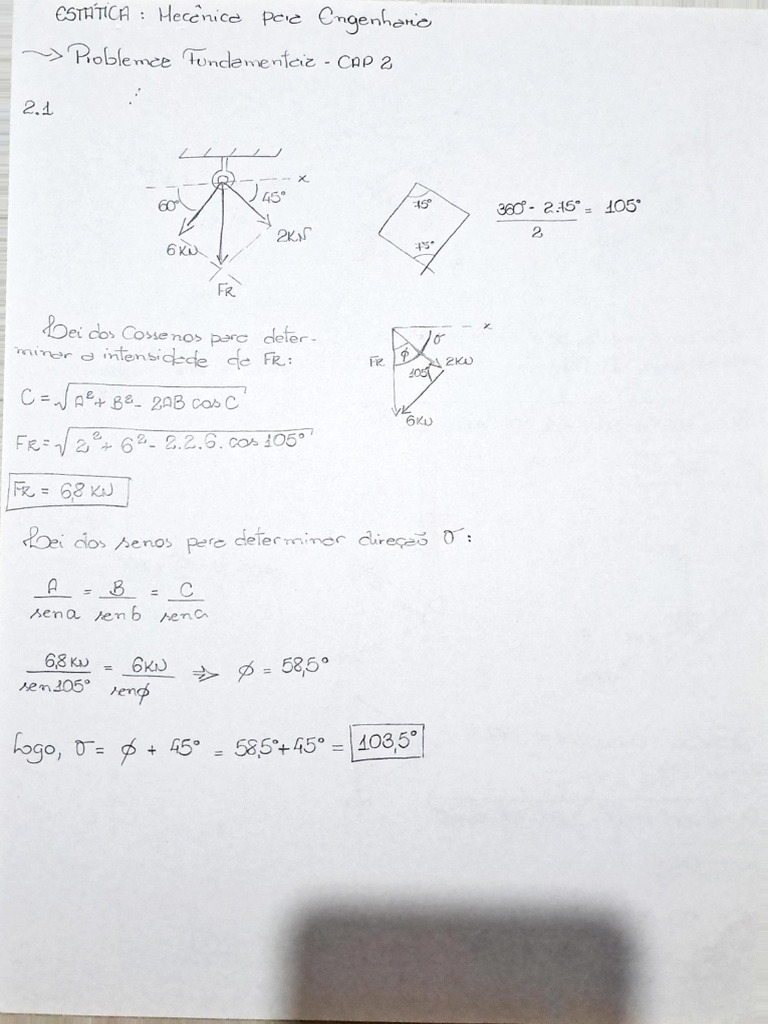 ESTÁTICA: Mecânica para Engenharia
→ Problemas Fundamentais - CAP 2
2.1
x
60°
45°
6KN
2KN
FR
75°
75°
360° - 2.75° = 105°
2
Lei dos Cossenos para deter-
minar a intensidade de FR:
C = √A² + B² - 2AB cos C
FR = √2² + 6² - 2.2.6. cos 105°
FR = 6,8 KN
x
σ
FR
ϕ
2KN
105
6KN
Lei dos senos para determinar direção σ:
A = B = C
sen a sen b sen c
6,8 KN = 6KN ⇒ ϕ = 58,5°
sen 105° sen ϕ
Logo, σ = ϕ + 45° = 58,5° + 45° = 103,5°